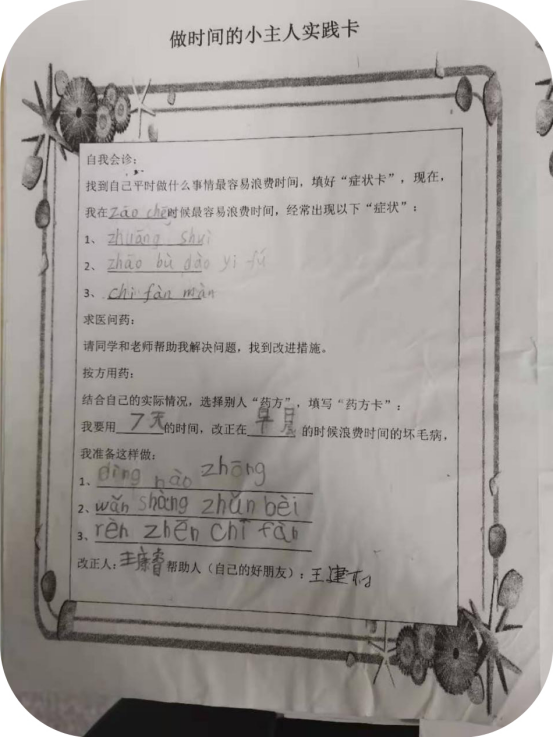 做时间的小主人实践卡
自我会诊：
找到自己平时做什么事情最容易浪费时间，填好“症状卡”，现在，
我在zǎo chē时候最容易浪费时间，经常出现以下“症状”：
1、zhuāng shuì
2、zhǎo bù dào yī fú
3、chī fàn màn
求医问药：
请同学和老师帮助我解决问题，找到改进措施。
按方用药：
结合自己的实际情况，选择别人“药方”，填写“药方卡”：
我要用7天的时间，改正在早晨的时候浪费时间的坏毛病，
我准备这样做：
1、dìng nào zhōng
2、wǎn shàng zhǔn bèi
3、rèn zhēn chī fàn
改正人：帮助人（自己的好朋友）：王建